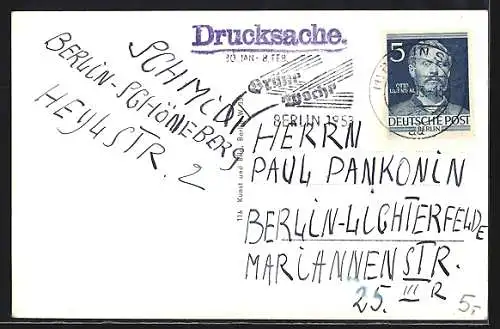 Drucksache.
30. JAN. - 8. FEB.
Grüne
Woche
BERLIN 1953
5
OTTO
LILIENTHAL
DEUTSCHE POST
BERLIN
SCHMIDT
BERLIN-SCHÖNEBERG
HEYLSTR. 2
HERRN
PAUL PANKONIN
BERLIN-LICHTERFELDE
MARIANNENSTR.
25. III R
5,-
Kunst und Bild, Berlin